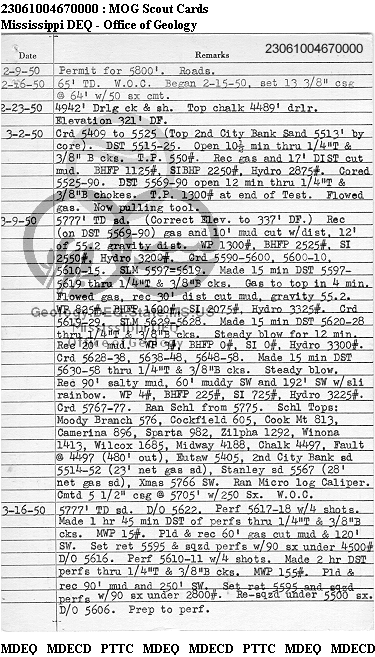 23061004670000 : MOG Scout Cards
Mississippi DEQ - Office of Geology
Date Remarks 23061004670000
2-9-50 Permit for 5800'. Roads.
2-16-50 65' TD. W.O.C. Began 2-15-50, set 13 3/8" csg
@ 64' w/50 sx cmt.
2-23-50 4942' Drlg ck & sh. Top chalk 4489' drlr.
Elevation 321' DF.
3-2-50 Crd 5409 to 5525 (Top 2nd City Bank Sand 5513' by
core). DST 5515-25. Open 10½ min thru 1/4"T &
3/8" B cks. T.P. 550#. Rec gas and 17' DIST cut
mud. BHFP 1125#, SIBHP 2250#, Hydro 2875#. Cored
5525-90. DST 5569-90 open 12 min thru 1/4"T &
3/8"B chokes. T.P. 1300# at end of Test. Flowed
gas. Now pulling tool.
3-9-50 5777' TD sd. (Correct Elev. to 337' DF.) Rec
(on DST 5569-90) gas and 10' mud cut w/dist, 12'
of 55.2 gravity dist. WP 1300#, BHFP 2525#, SI
2550#, Hydro 3200#. Crd 5590-5600, 5600-10,
5610-15. SLM 5597=5619. Made 15 min DST 5597-
5619 thru 1/4"T & 3/8"B cks. Gas to top in 4 min.
Flowed gas, rec 30' dist cut mud, gravity 55.2.
WP 825#, BHFP 1600#, SI 2075#, Hydro 3325#. Crd
5619-29. SLM 5632=5628. Made 15 min DST 5620-28
thru 1/4"T & 3/8"B cks. Steady blow for 12 min.
Rec 20' mud. WP 3#, BHFP 0#, SI 0#, Hydro 3300#.
Crd 5628-38, 5638-48, 5648-58. Made 15 min DST
5630-58 thru 1/4"T & 3/8"B cks. Steady blow.
Rec 90' salty mud, 60' muddy SW and 192' SW w/sli
rainbow. WP 4#, BHFP 225#, SI 725#, Hydro 3225#.
Crd 5767-77. Ran Schl from 5775. Schl Tops:
Moody Branch 576, Cockfield 605, Cook Mt 813,
Camerina 896, Sparta 982, Zilpha 1292, Winona
1413, Wilcox 1685, Midway 4188, Chalk 4497, Fault
@ 4497 (480' out), Eutaw 5405, 2nd City Bank sd
5514-52 (23' net gas sd), Stanley sd 5567 (28'
net gas sd), Xmas 5766 SW. Ran Micro log Caliper.
Cmtd 5 1/2" csg @ 5705' w/250 Sx. W.O.C.
3-16-50 5777' TD sd. D/O 5622. Perf 5617-18 w/4 shots.
Made 1 hr 45 min DST of perfs thru 1/4"T & 3/8"B
cks. MWP 15#. Pld & rec 60' gas cut mud & 120'
SW. Set ret 5595 & sqzd perfs w/90 sx under 4500#
D/O 5616. Perf 5610-11 w/4 shots. Made 2 hr DST
perfs thru 1/4"T & 3/8"B cks. MWP 155#. Pld &
rec 90' mud and 250' SW. Set ret 5595 and sqzd
perfs w/90 sx under 2800#. Re-sqzd under 5500 sx.
D/O 5606. Prep to perf.
MDEQ MDECD PTTC MDEQ MDECD PTTC MDEQ MDECD